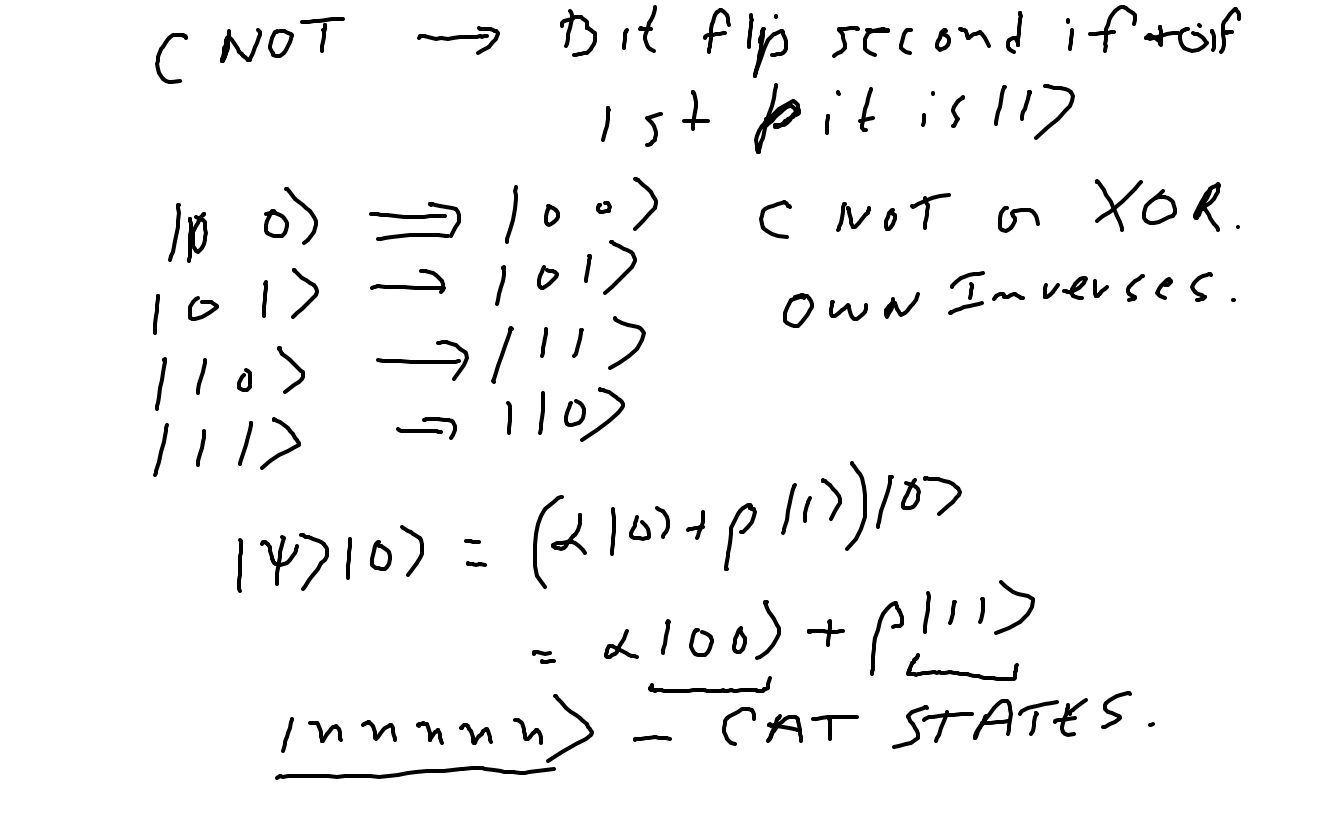 CNOT → Bit flip second if
1st bit is |1>
|00> ⇒ |00> CNOT or XOR.
|01> → |01> own Inverses.
|10> → |11>
|11> ⇒ |10>
|ψ>|0> = (α|0> + β|1>)|0>
= α|00> + β|11>
|nnnnn> – CAT STATES.